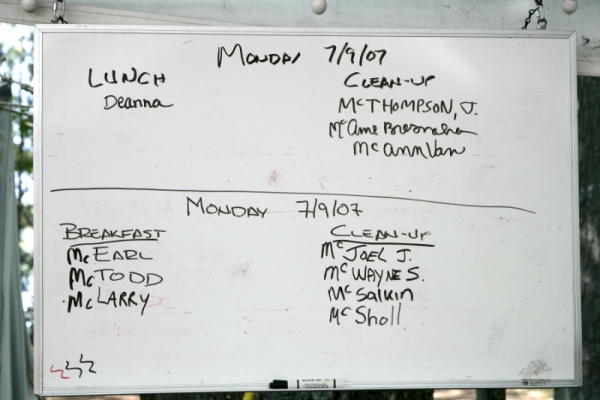 MONDAY 7/9/07
LUNCH
Deanna
CLEAN-UP
McTHOMPSON, J.
McAnne Bresnahan
McAnnVan
MONDAY 7/9/07
BREAKFAST
McEARL
McTODD
McLARRY
CLEAN-UP
McJOEL J.
McWAYNE S.
McSalkin
McSholl